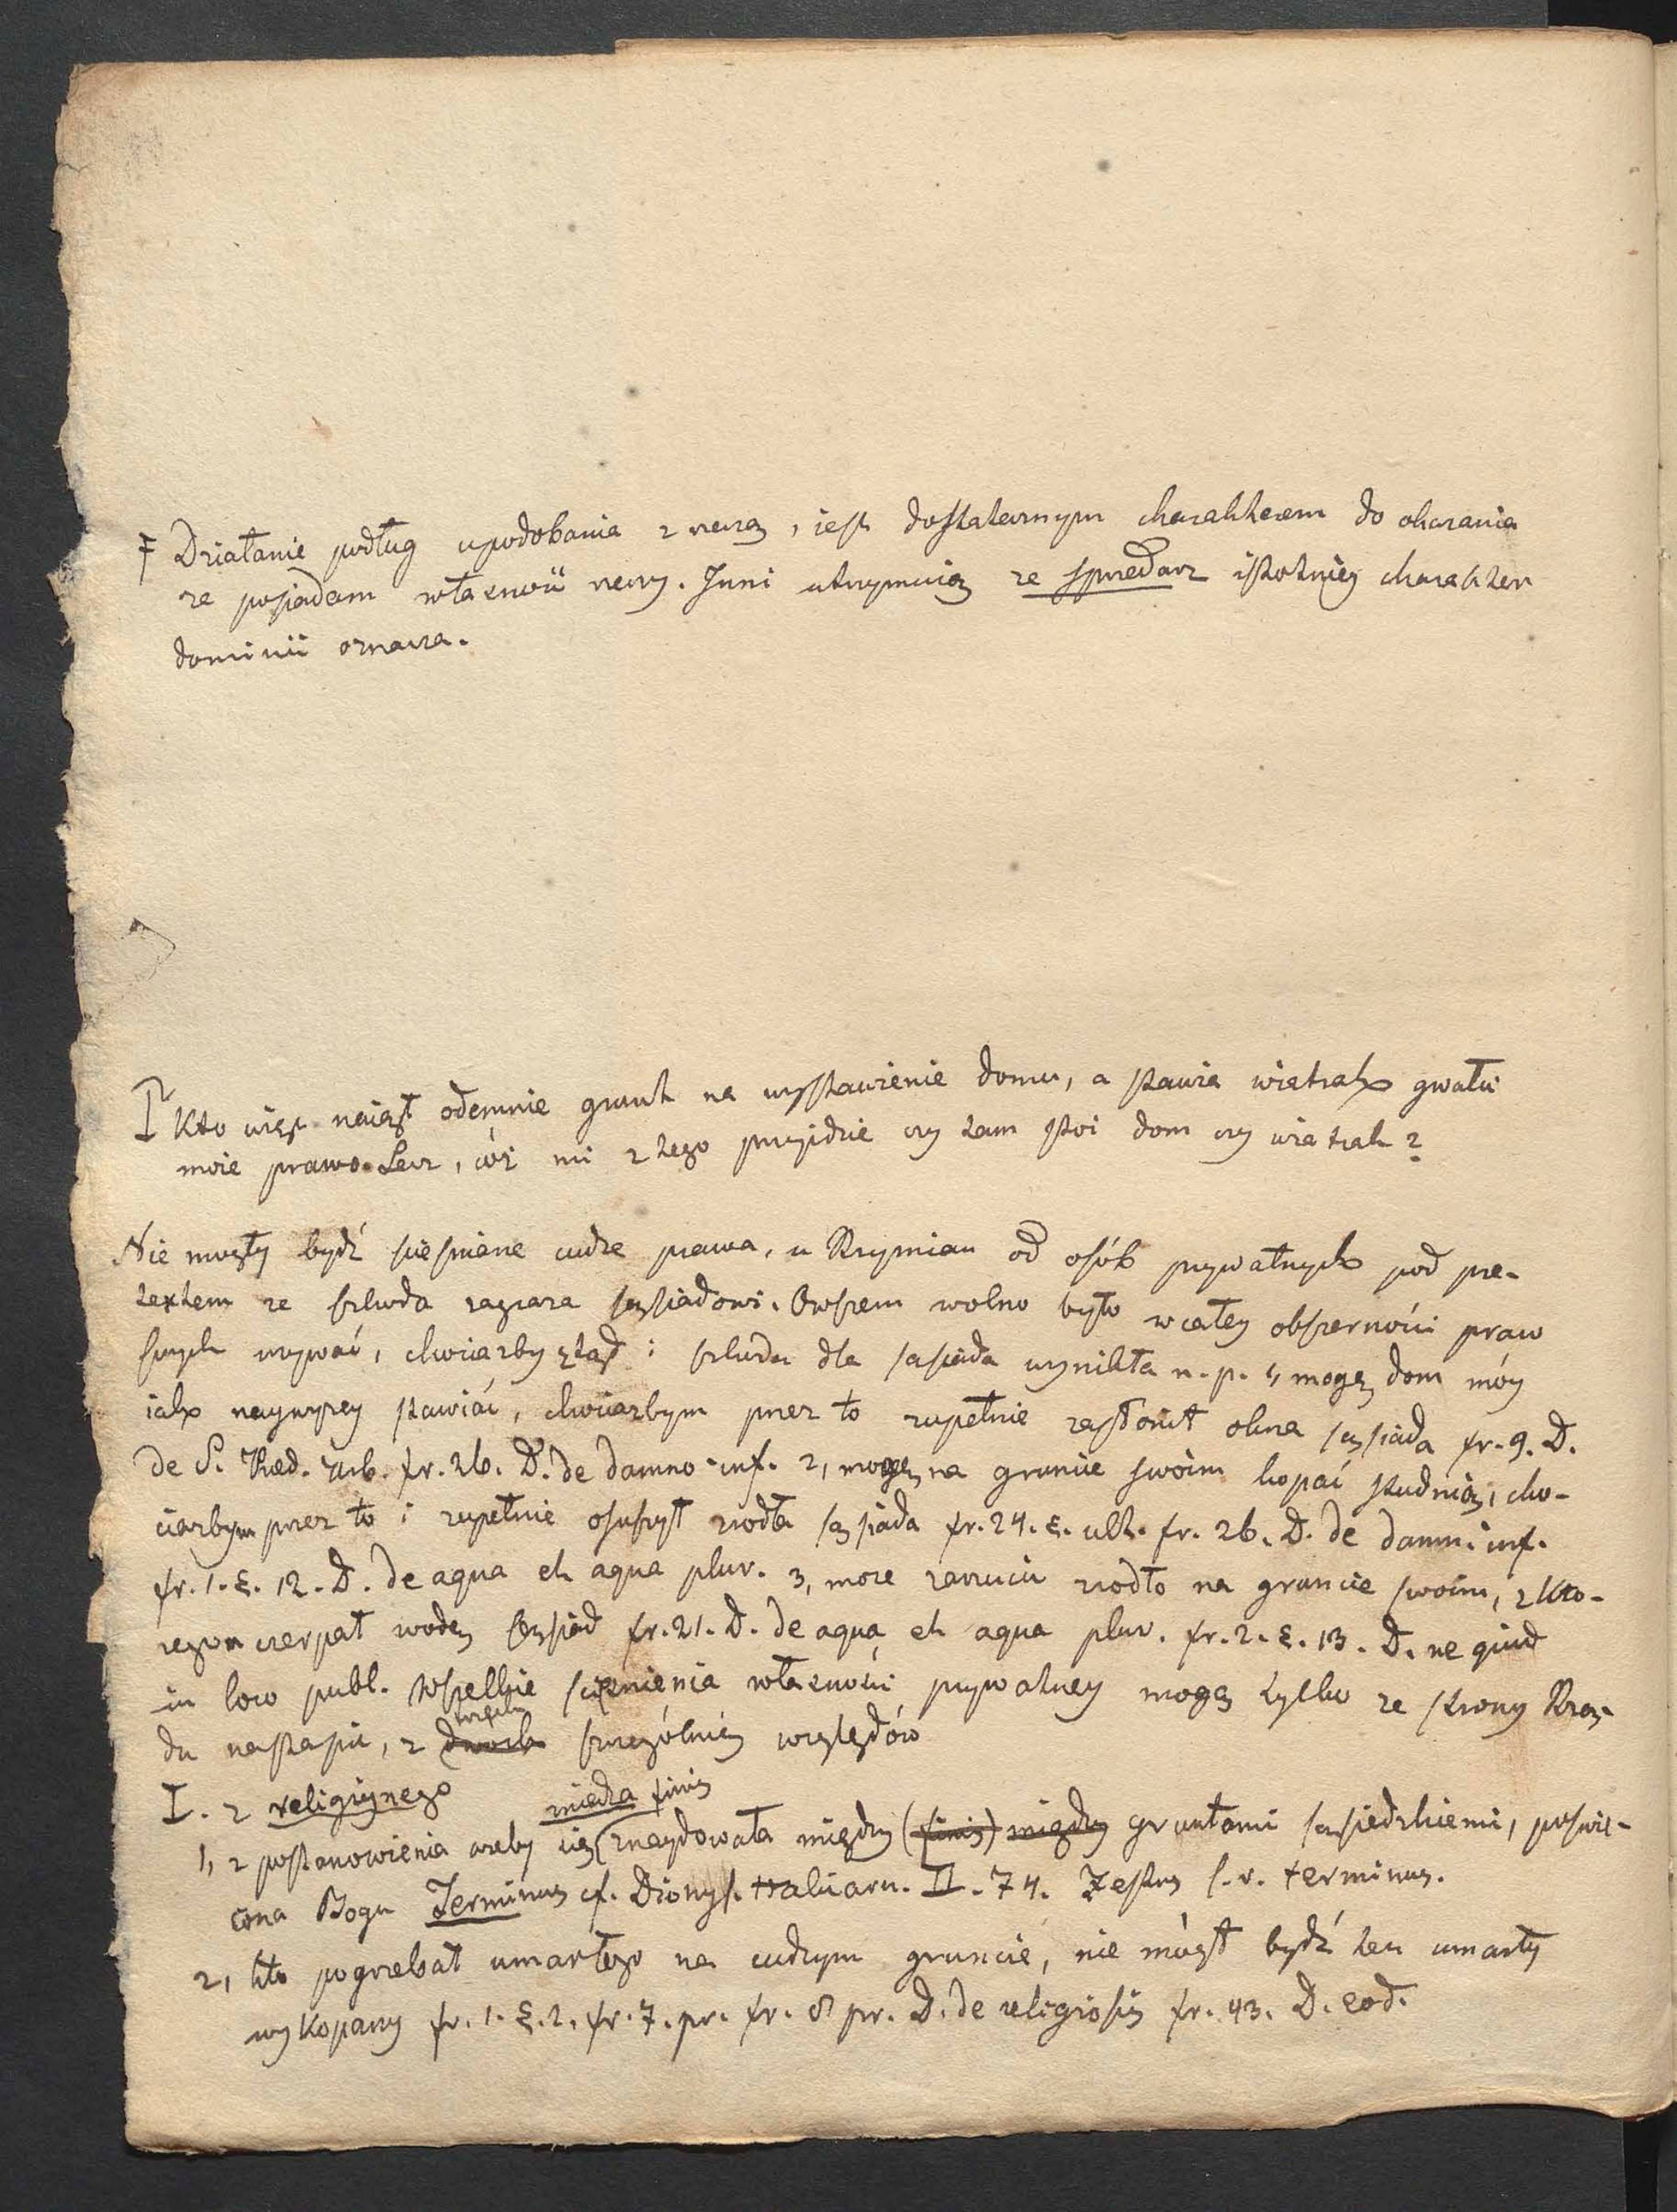 Ŧ Działanie podług upodobania z rzeczą, iest dostatecznym charakterem do okazania
że posiadam własność rzeczy. Inni utrzymuią że sprzedarz istotnieÿ charakter
dominii oznacza.
Kto więc naiął odemnie grunt na wystawienie domu, a stawia wiatrak gwałci
moie prawo. Lecz, cóż mi z tego przyidzie czy tam stoi dom czy wiatrak?
Nie mogły bydź scieśniane cudze prawa, u Rzymian od osób prywatnych pod pre-
textem że szkoda zagraża sąsiadowi. Owszem wolno było w całey obszerności praw
swych używać, chociażby ztąd i szkoda dla sąsiada wynikła n. p. 1, mogę dom móy
iak naywyżey stawiać, chociażbym przez to zupełnie zasłonił okna sąsiada fr. 9. D.
de S. Praed. Urb. fr. 26. D. de damno inf. 2, mogę na gruncie swoim kopać studnią, cho-
ciażbym przez to i zupełnie osuszył zrodła sąsiada fr. 24. §. ult. fr. 26. D. de damn. inf.
fr. 1. §. 12. D. de aqua et aqua pluv. 3, może zarzucić zrodło na gruncie swoim, z kto-
rego czerpał wodę sąsiad fr. 21. D. de aqua et aqua pluv. fr. 2. §. 13. D. ne quid
in loco publ. Wszelkie scieśnienia własności prywatney mogą tylko ze strony Rzą-
du nastąpić, z szczególniey względów
I. z religiynego
miedza finis
1, z postanowienia ażeby się (znaydowała między (finis) między gruntami sąsiedzkiemi, poswię-
cona Bogu Terminus cf. Dionys. Halicarn. II. 74. Festus s. v. terminus.
2, kto pogrzebał umarłego na cudzym gruncie, nie mógł bydź ten umarły
wykopany fr. 1. §. 2. fr. 7. pr. fr. 8 pr. D. de religiosis fr. 43. D. eod.